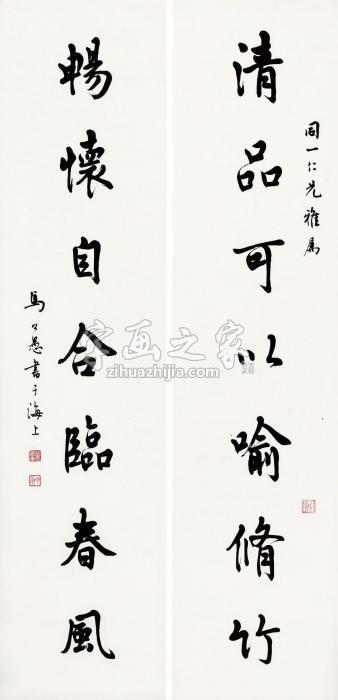 同一仁兄雅属
清品可以喻脩竹
暢懷自合臨春風
馬公愚書于海上
字画之家
zihuazhijia.com